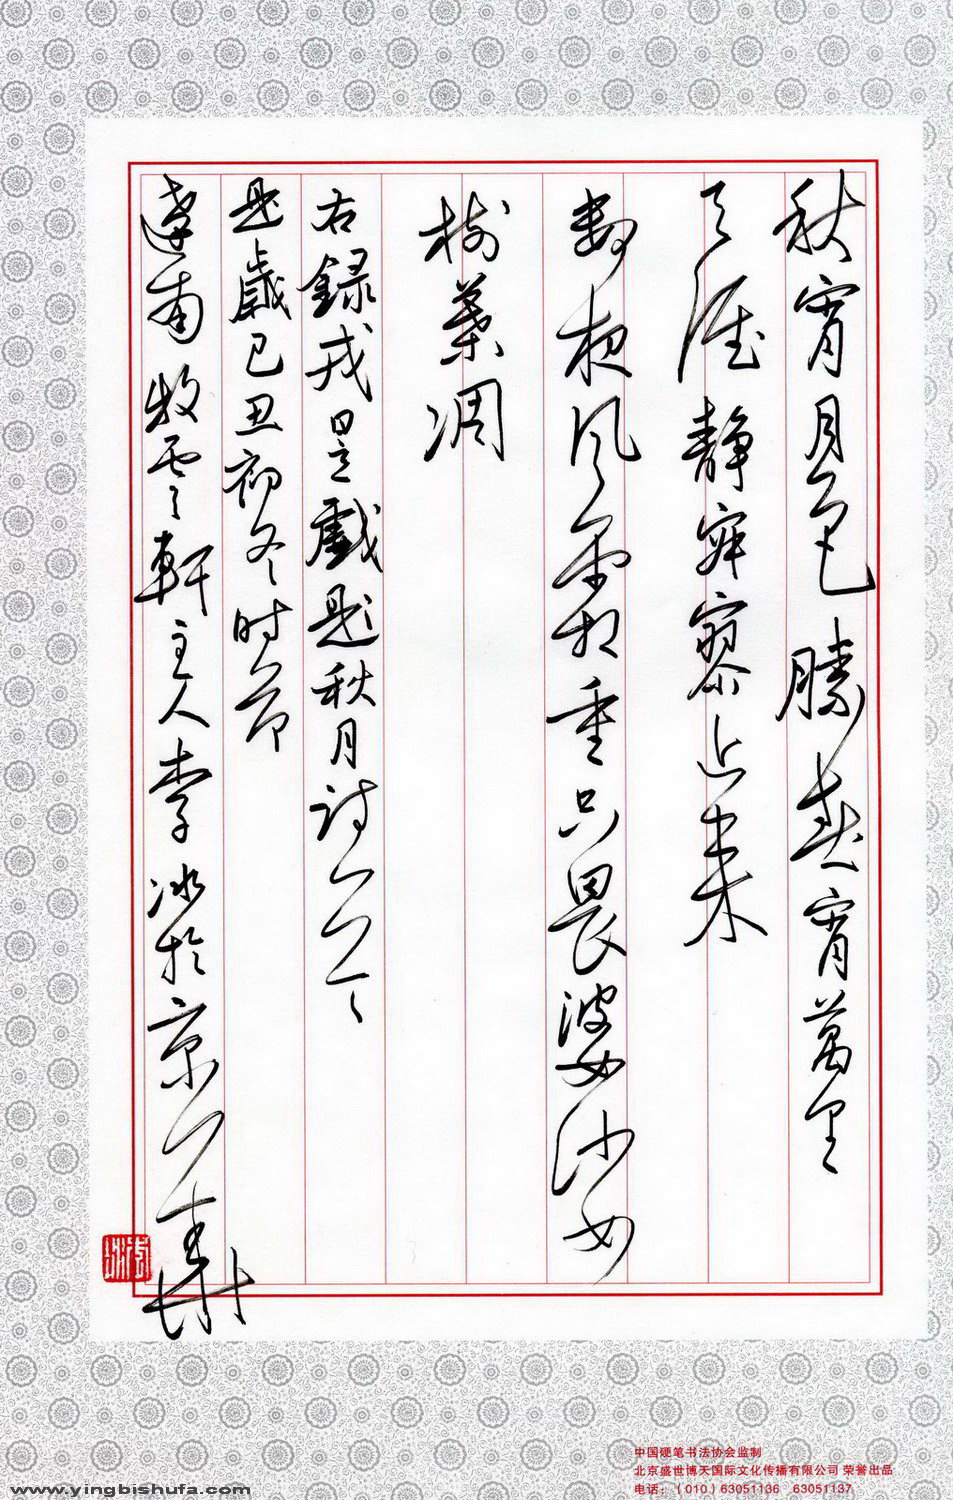 秋宵月色勝春宵萬里
天涯靜寂寥近来
數夜風霜重只畏婆娑
樹葉凋
右錄戎昱戲題秋月詩一首
是歲己丑初冬时節
遼南牧雲軒主人李冰於京華
李冰
中国硬笔书法协会监制
北京盛世博天国际文化传播有限公司 荣誉出品
电话：（010）63051136　63051137
www.yingbishufa.com